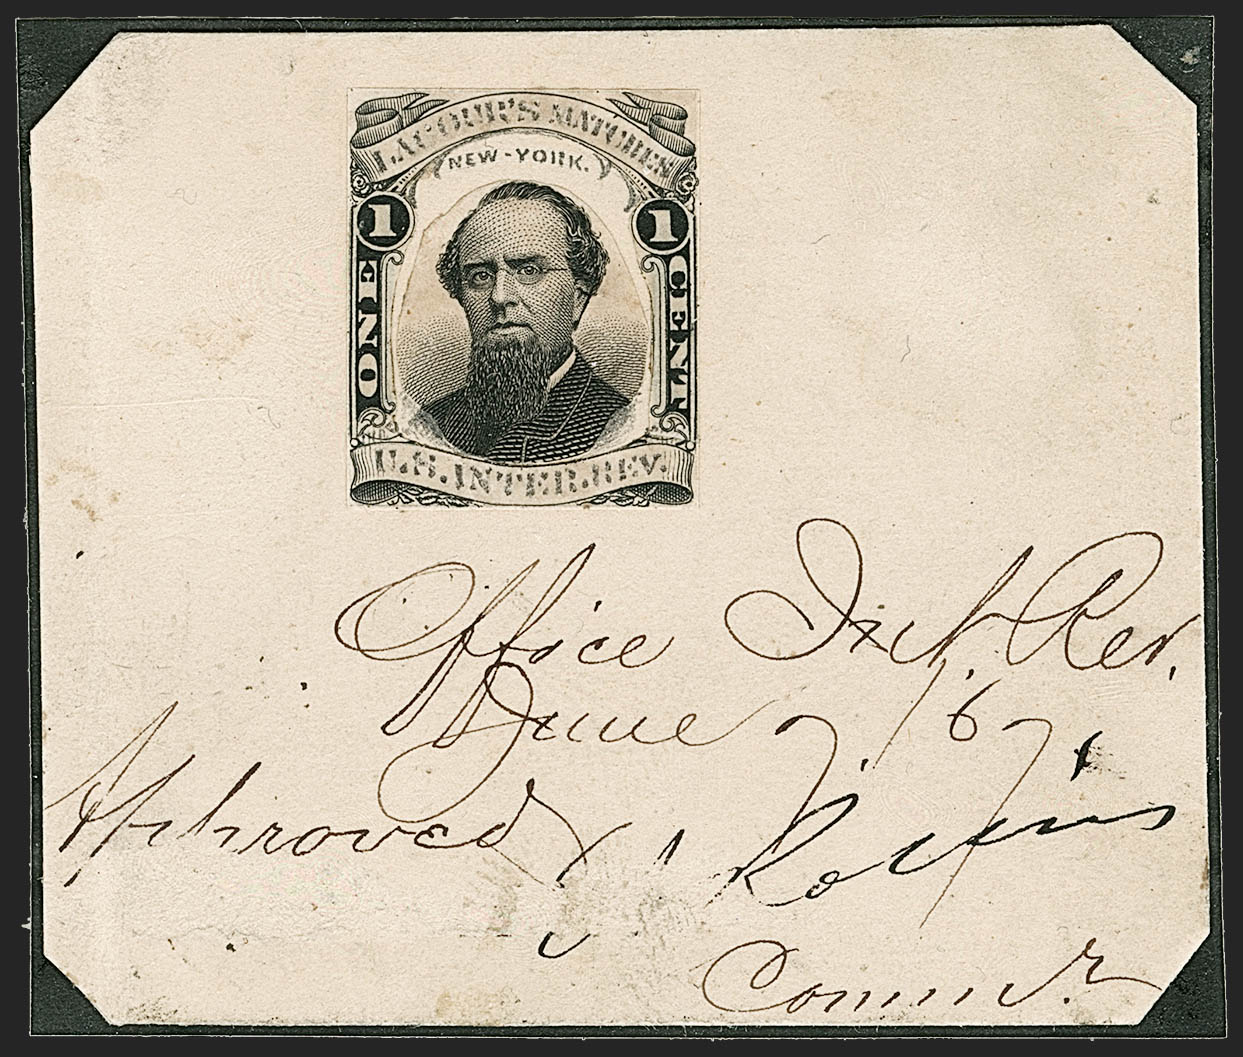 LACOUR'S MATCHES
NEW-YORK.
1 1
ONE CENT
U.S. INTER. REV.
Office Int. Rev.
June 7. 1867.
Approved
Rollins
Commr.